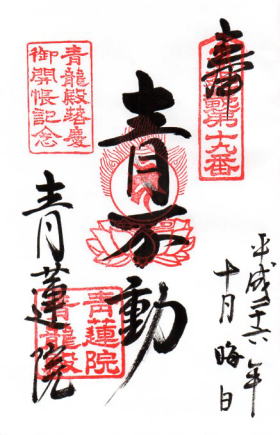 奉拝
霊場第十九番
平成二十六年
十月晦日
青不動
青龍殿落慶
御開帳記念
青蓮院
青蓮院
青龍殿